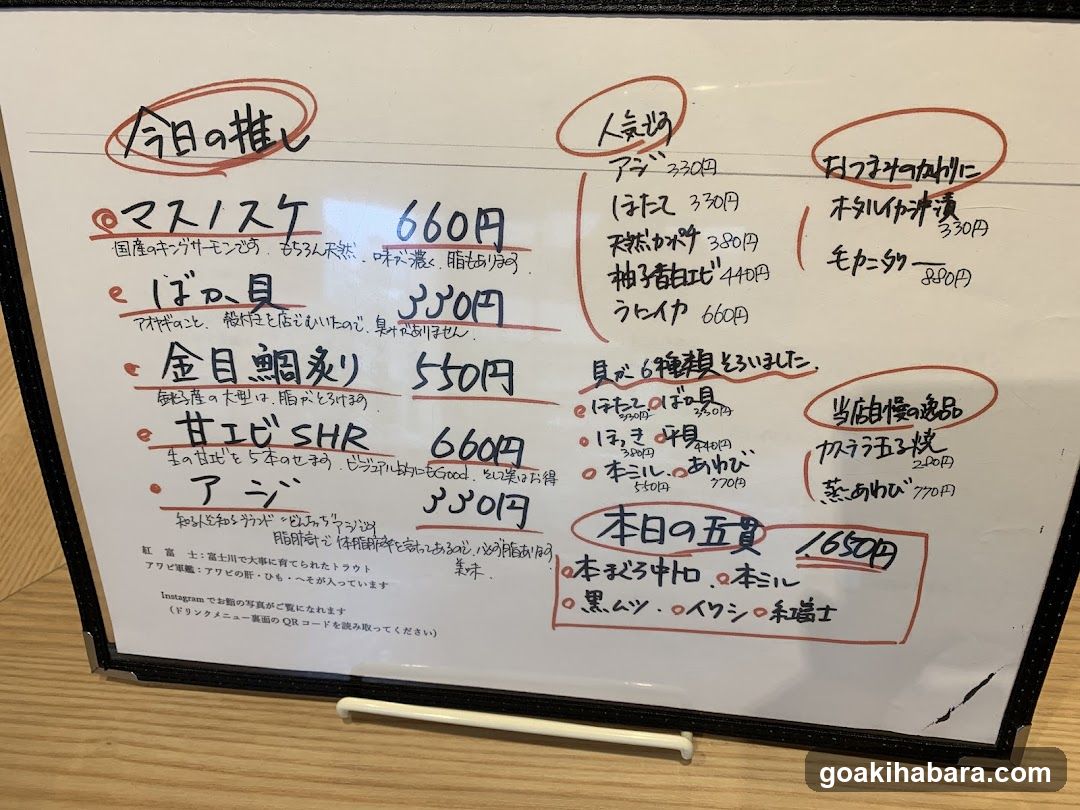 今日の推し
マスノスケ 660円
国産のキングサーモンです。もちろん天然。味が濃く、脂もあります。
ばか貝 330円
アオヤギのこと。殻付きを店でむいたので、臭みがありません。
金目鯛炙り 550円
銚子産の大型は、脂がとろけます。
甘エビSHR 660円
生の甘エビを5本のせます。ビジュアル的にもGood。そして実はお得
アジ 330円
知る人ぞ知るブランド“どんちっち”アジです
脂肪計で体脂肪率を
美味。
紅富士：富士川で大事に育てられたトラウト
アワビ軍艦：アワビの肝・ひも・へそが入っています
Instagramでお鮨の写真がご覧になれます
（ドリンクメニュー裏面のQRコードを読み取ってください）
人気です
アジ 330円
ほたて 330円
天然カンパチ 380円
柚子香白エビ 440円
うにイカ 660円
貝が、6種類そろいました。
ほたて 330円 ばか貝 330円
ほっき 380円 平貝 440円
本ミル 550円 あわび 770円
本日の五貫 1,650円
本まぐろ中トロ 本ミル
黒ムツ イワシ 紅富士
おつまみのかわりに
ホタルイカ沖漬 330円
毛カニタワー 880円
当店自慢の逸品
カステラ玉子焼 280円
蒸あわび 770円
goakihabara.com